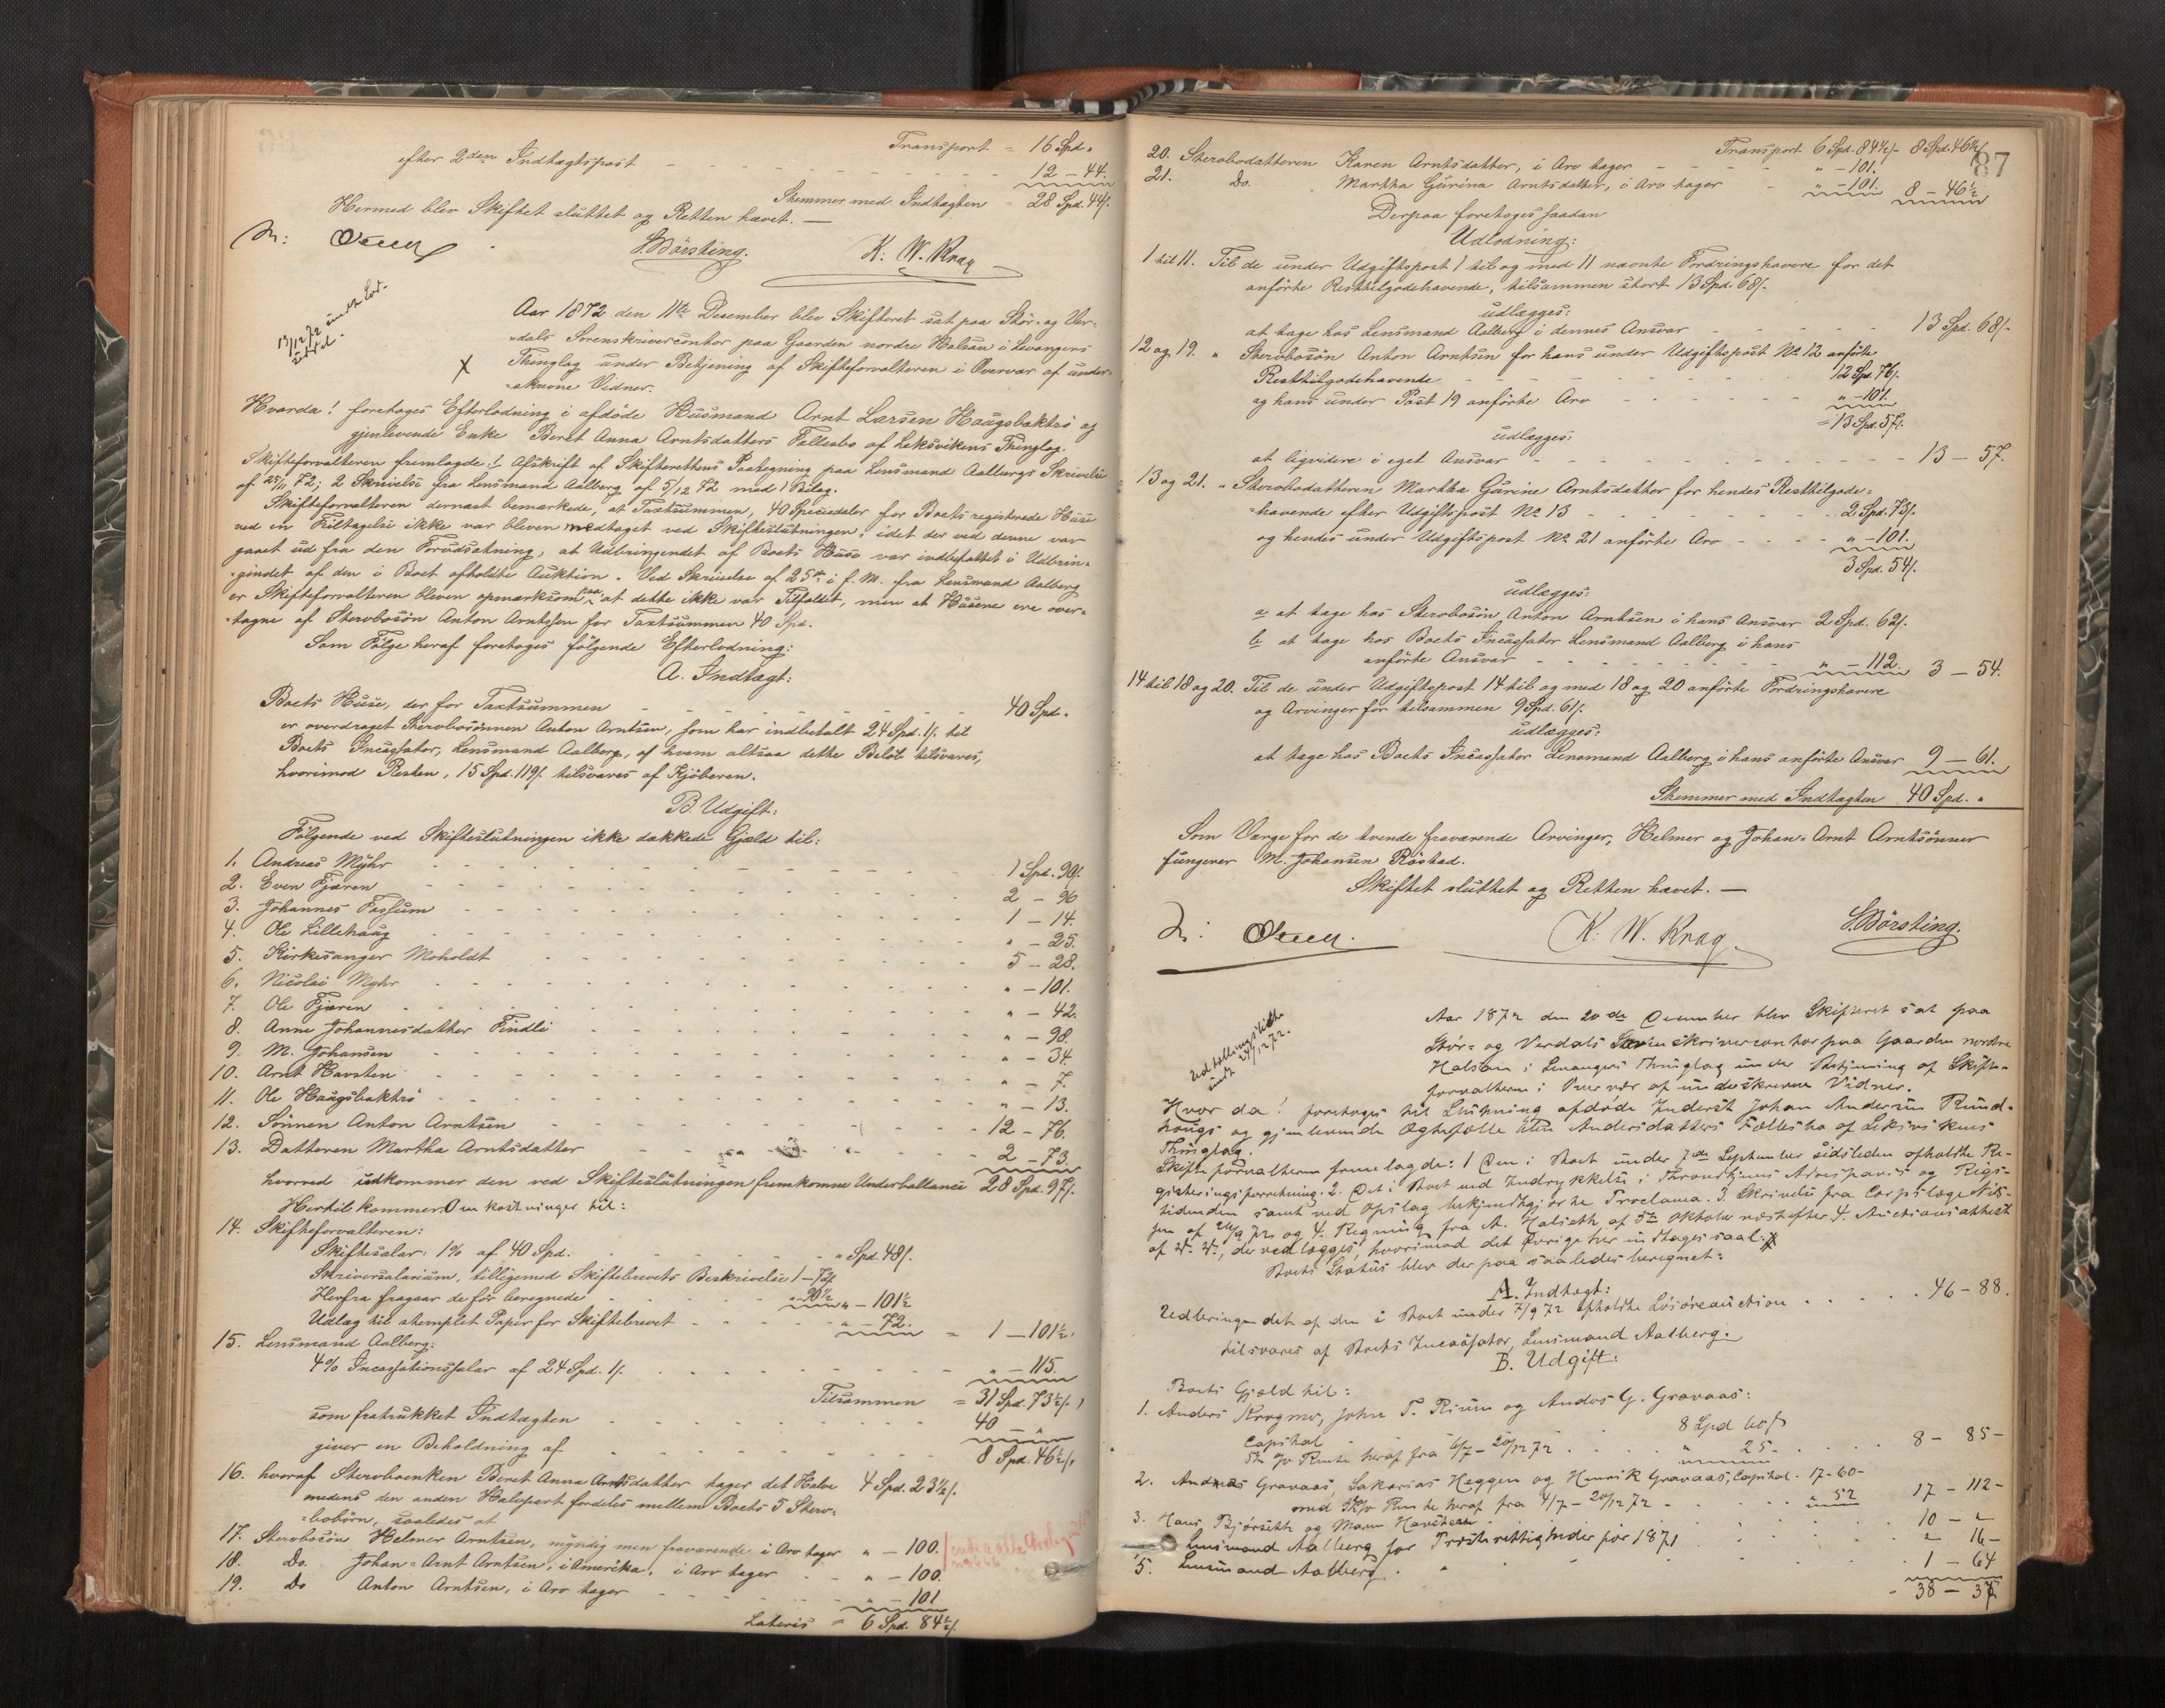 Transport = 16 Spd. "
efter 2den Indtægtspost - - - - 12 - 44.
Stemmer med Indtægten = 28 Spd. 44/.
Hermed blev Skiftet sluttet og Retten hævet. —
S. Börsting. K. W. Krag
13/12 72 indt. Lev.
Aar 1872 den 11te December blev Skifteret sat paa Stör- og Vær-
-dals Sorenskrivercontor paa Gaarden nordre Halsan i Levangers
X Thinglag under Betjening af Skifteforvalteren i Overvær af under-
-skrevne Vidner.
Hvorda! foretoges Efterlodning i afdöde Husmand Arnt Larsen Haugsbaktrö og
gjenlevende Enke Beret Anna Arntsdatters Fællesbo af Leksvikens Thinglag.
Skifteforvalteren fremlagde: 1 Afskrift af Skifterettens Paategning paa Lensmand Aalbergs Skrivelse
af 25/11 72; 2 Skrivelse fra Lensmand Aalberg af 5/12 72 med 1 Bilag.
Skifteforvalteren dernæst bemærkede, at Taxtsummen, 40 Speciedaler for Boets registrerede Huse
ved en Feiltagelse ikke var bleven medtaget ved Skifteslutningen; idet der ved denne var
gaaet ud fra den Forudsætning, at Udbringendet af Boets Huse var indbefattet i Udbrin-
-gendet af den i Boet afholdte Auktion. Ved Skrivelse af 25de i f. M. fra Lensmand Aalberg
er Skifteforvalteren bleven opmærksom paa at dette ikke var Tilfældet, men at Husene ere over-
-tagne af Stervbosön Anton Arntsen for Taxtsummen 40 Spd.
Som Fölge heraf foretoges fölgende Efterlodning:
A. Indtægt:
Boets Huse, der for Taxtsummen - - - 40 Spd. "
er overdraget Stervbosönnen Anton Arntsen, som har indbetalt 24 Spd. 1/. til
Boets Incassator, Lensmand Aalberg, af hvem altsaa dette Belöb tilsvares,
hvorimod Resten, 15 Spd. 119/. tilsvares af Kjöberen.
B. Udgift:
Fölgende ved Skifteslutningen ikke dækkede Gjæld til:
1. Andreas Myhr - - - 1 Spd. 90/.
2. Even Fjæren - - - 2 - 96
3. Johannes Fossum - - - 1 - 14.
4. Ole Lillehaug - - - " - 25.
5. Kirkesanger Moholdt - - - 5 - 28.
6. Nicolai Myhr - - - " - 101.
7. Ole Fjæren - - - " - 42.
8. Anne Johannesdatter Findli - - - " - 98.
9. M. Johansen - - - " - 34
10. Arnt Havsten - - - " - 7.
11. Ole Haugsbaktrö - - - " - 13.
12. Sönnen Anton Arntsen - - - 12 - 76.
13. Datteren Martha Arntsdatter - - - 2 - 73.
hvorved udkommer den ved Skifteslutningen fremkomne Underballance 28 Spd. 97/.
Hertil kommer Omkostninger til:
14. Skifteforvalteren:
Skiftesalar: 1% af 40 Spd. - - - " Spd. 48/.
Skriversalarium, tilligemed Skiftebrevets Beskrivelse 1 - 72
Herfra fragaar de för beregnede - - - " 90½ " - 101½
Udlæg til stemplet Papir for Skiftebrevet - - - " - 72. = 1 - 101½.
15. Lensmand Aalberg:
4% Incassationssalar af 24 Spd. 1/. - - - " - 115.
Tilsammen = 31 Spd. 73½/.
som fratrukket Indtægten - - - 40 - "
giver en Beholdning af - - - 8 Spd. 46½/.
16. hvoraf Stervboenken Beret Anna Arntsdatter tager det Halve 4 Spd. 23½/.
medens den anden Halvpart fordeles mellem Boets 5 Sterv-
-bobörn, saaledes at
17. Stervbosön Helmer Arntsen, myndig men fraværende i Arv tager " - 100.
18. Do. Johan-Arnt Arntsen, i Amerika, i Arv tager - - " - 100.
19. Do Anton Arntsen, i Arv tager - - - " - 101
Lateris = 6 Spd. 84½/.
87
Transport 6 Spd. 84½/- 8 Spd. 46½/.
20. Stervbodatteren Karen Arntsdatter, i Arv tager - - - " - 101.
21. Do. Martha Gurina Arntsdatter, i Arv tager - " - 101. 8 - 46½
Derpaa foretoges saadan
Udlodning:
1 til 11. Til de under Udgiftspost 1 til og med 11 nævnte Fordringshavere for det
anförte Resttilgodehavende, tilsammen stort 13 Spd. 68/.
udlægges:
at tage hos Lensmand Aalberg i dennes Ansvar - - - 13 Spd. 68/.
12 og 19. " Stervbosön Anton Arntsen for hans under Udgiftspost No 12 anförte
Resttilgodehavende - - - 12 Spd. 76/.
og hans under Post 19 anförte Arv - - - " - 101.
= 13 Spd. 57/.
udlægges:
at liqvidere i eget Ansvar - - - 13 - 57.
13 og 21. " Stervbodatteren Martha Gurine Arntsdatter for hendes Resttilgode-
-havende efter Udgiftspost No 13 - - - 2 Spd. 73/.
og hendes under Udgiftspost No 21 anförte Arv - - - " - 101.
3 Spd. 54/.
udlægges:
a at tage hos Stervbosön Anton Arntsen i hans Ansvar 2 Spd. 62/.
b at tage hos Boets Incassator Lensmand Aalberg i hans
anförte Ansvar - - - " - 112. 3 - 54.
14 til 18 og 20. Til de under Udgiftspost 14 til og med 18 og 20 anförte Fordringshavere
og Arvinger for tilsammen 9 Spd. 61/.
udlægges:
at tage hos Boets Incassator Lensmand Aalberg i hans anförte Ansvar 9 - 61.
Stemmer med Indtægten 40 Spd. "
Som Værge for de tvende fraværende Arvinger, Helmer og Johan-Arnt Arntsönner
fungerer M. Johansen Röstad.
Skiftet sluttet og Retten hævet. —
K. W. Krag. S. Börsting.
Aar 1872 den 20de December blev Skifteret sat paa
Stör- og Værdals Sorenskrivercontor paa Gaarden nordre
Halsan i Levangers Thinglag under Betjening af Skifte-
forvalteren i Overvær af underskrevne Vidner.
Hvor da! foretoges til Slutning afdöde Inderst Johan Andersen Rund-
haugs og gjenlevende Ægtefælle Andersdatters Fællesbo af Leksvikens
Thinglag.
Skifteforvalteren fremlagde: 1 Den i Boet under 7de September sidstleden afholdte Re-
gistreringsforretning. 2. Det i Boet ved Indrykkelse i Throndhjems Adresseavis og Rigs-
tidenden samt ved Opslag bekjendtgjorte Proclama. 3. Skrivelse fra Corpslæge Nils-
sen af 26/9 72 og 4. Regning fra A. Halseth af 5te Oktober næstefter. 4. Auctionsattest
af d. d., der vedlægges, hvorimod det övrige her indtages saal.
Boets Status blev derpaa saaledes beregnet:
A. Indtægt:
Udbringendet af den i Boet under 7/9 72 afholdte Lösöreauction - - - 46 - 88.
tilsvares af Boets Incassator, Lensmand Aalberg.
B. Udgift:
Boets Gjæld til:
1. Anders Krogmo, John T. Rium og Anders G. Gravaas:
Capital - - - 8 Spd 60/
5% Rente heraf fra 6/7 - 20/12 72 - - - " 25. - - - 8 - 85 -
2. Andreas Gravaas, Sakarias Heggen og Henrik Gravaas, Capital - 17-60-
med 5% Rente heraf fra 4/7 - 20/12 72 - - - " 52 17 - 112 -
3. Hans Björseth og Havsten - - - 10 - "
Lensmand Aalberg for Presterettigheder for 1871 - - - " 16 -
5. Lensmand Aalberg - - - 1 - 64
- 38 - 37